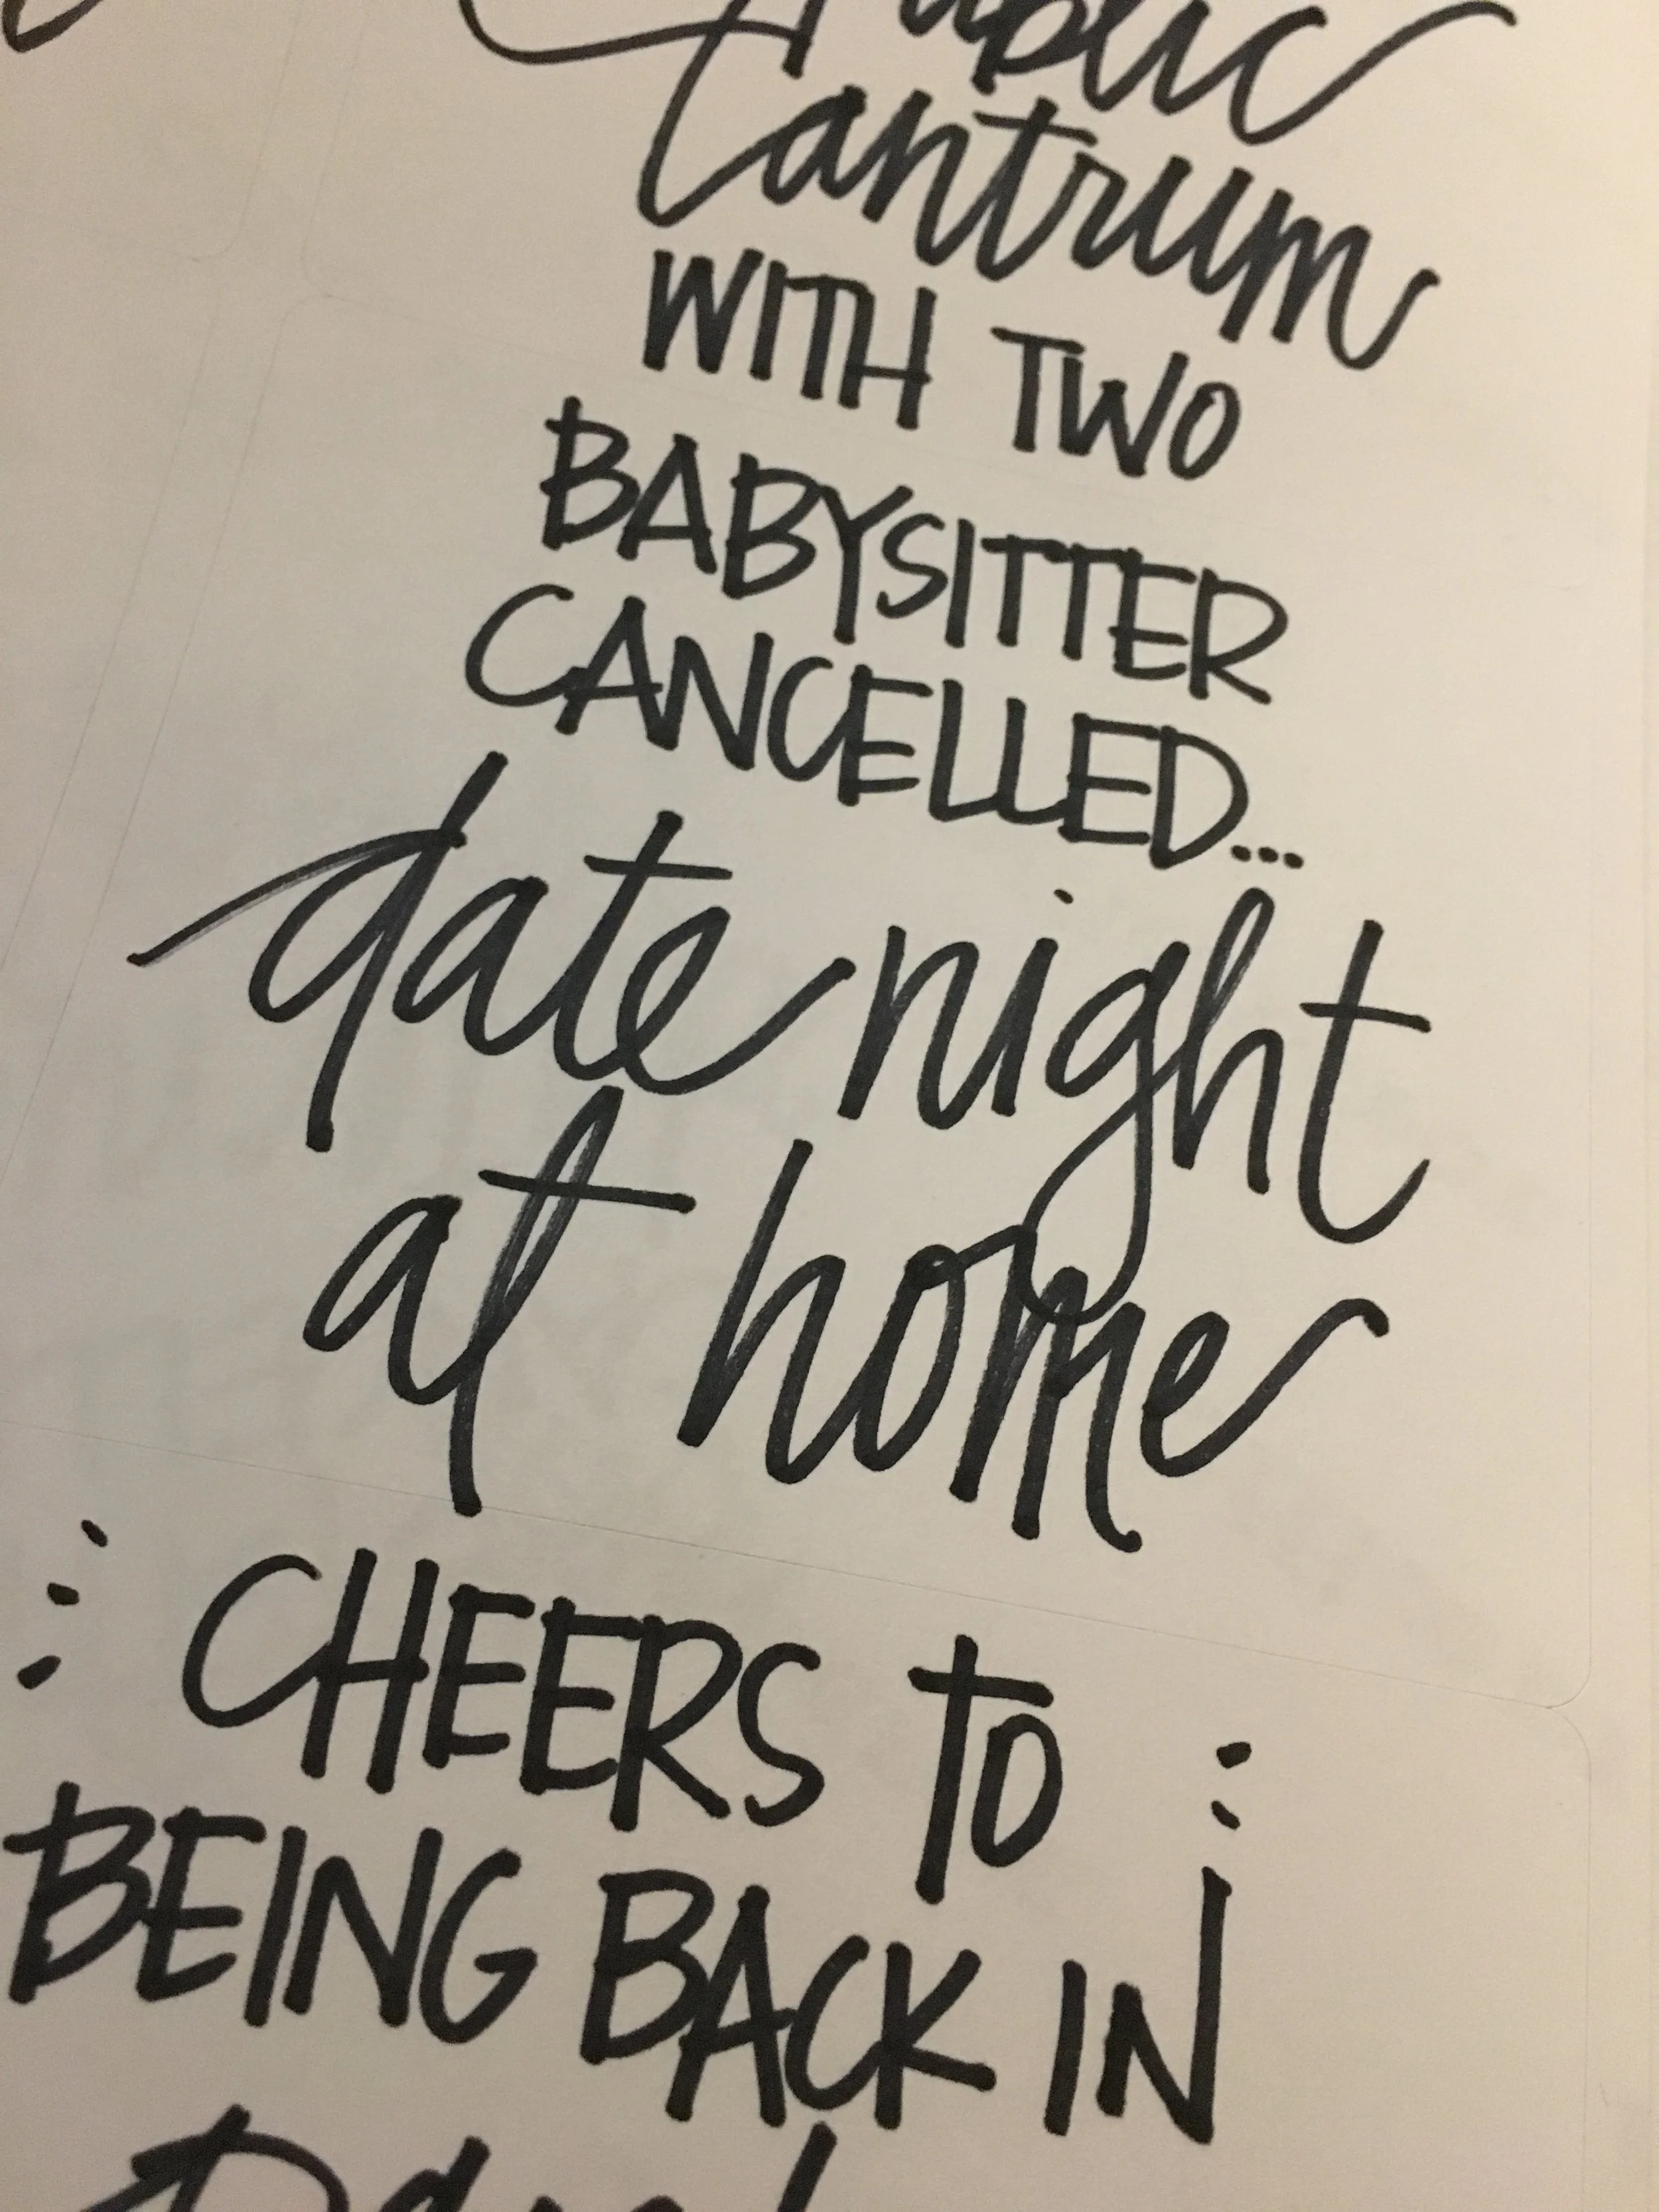 Public
tantrum
WITH TWO
BABYSITTER
CANCELLED...
date night
at home
CHEERS to
BEING BACK IN